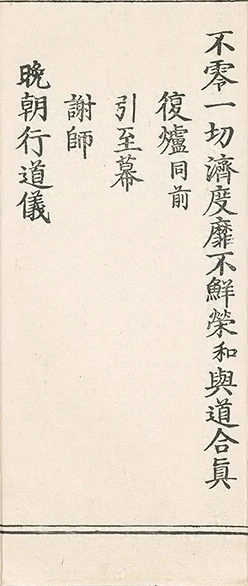 不零一切濟度靡不鮮榮和與道合真
復爐同前
引至幕
謝師
晚朝行道儀